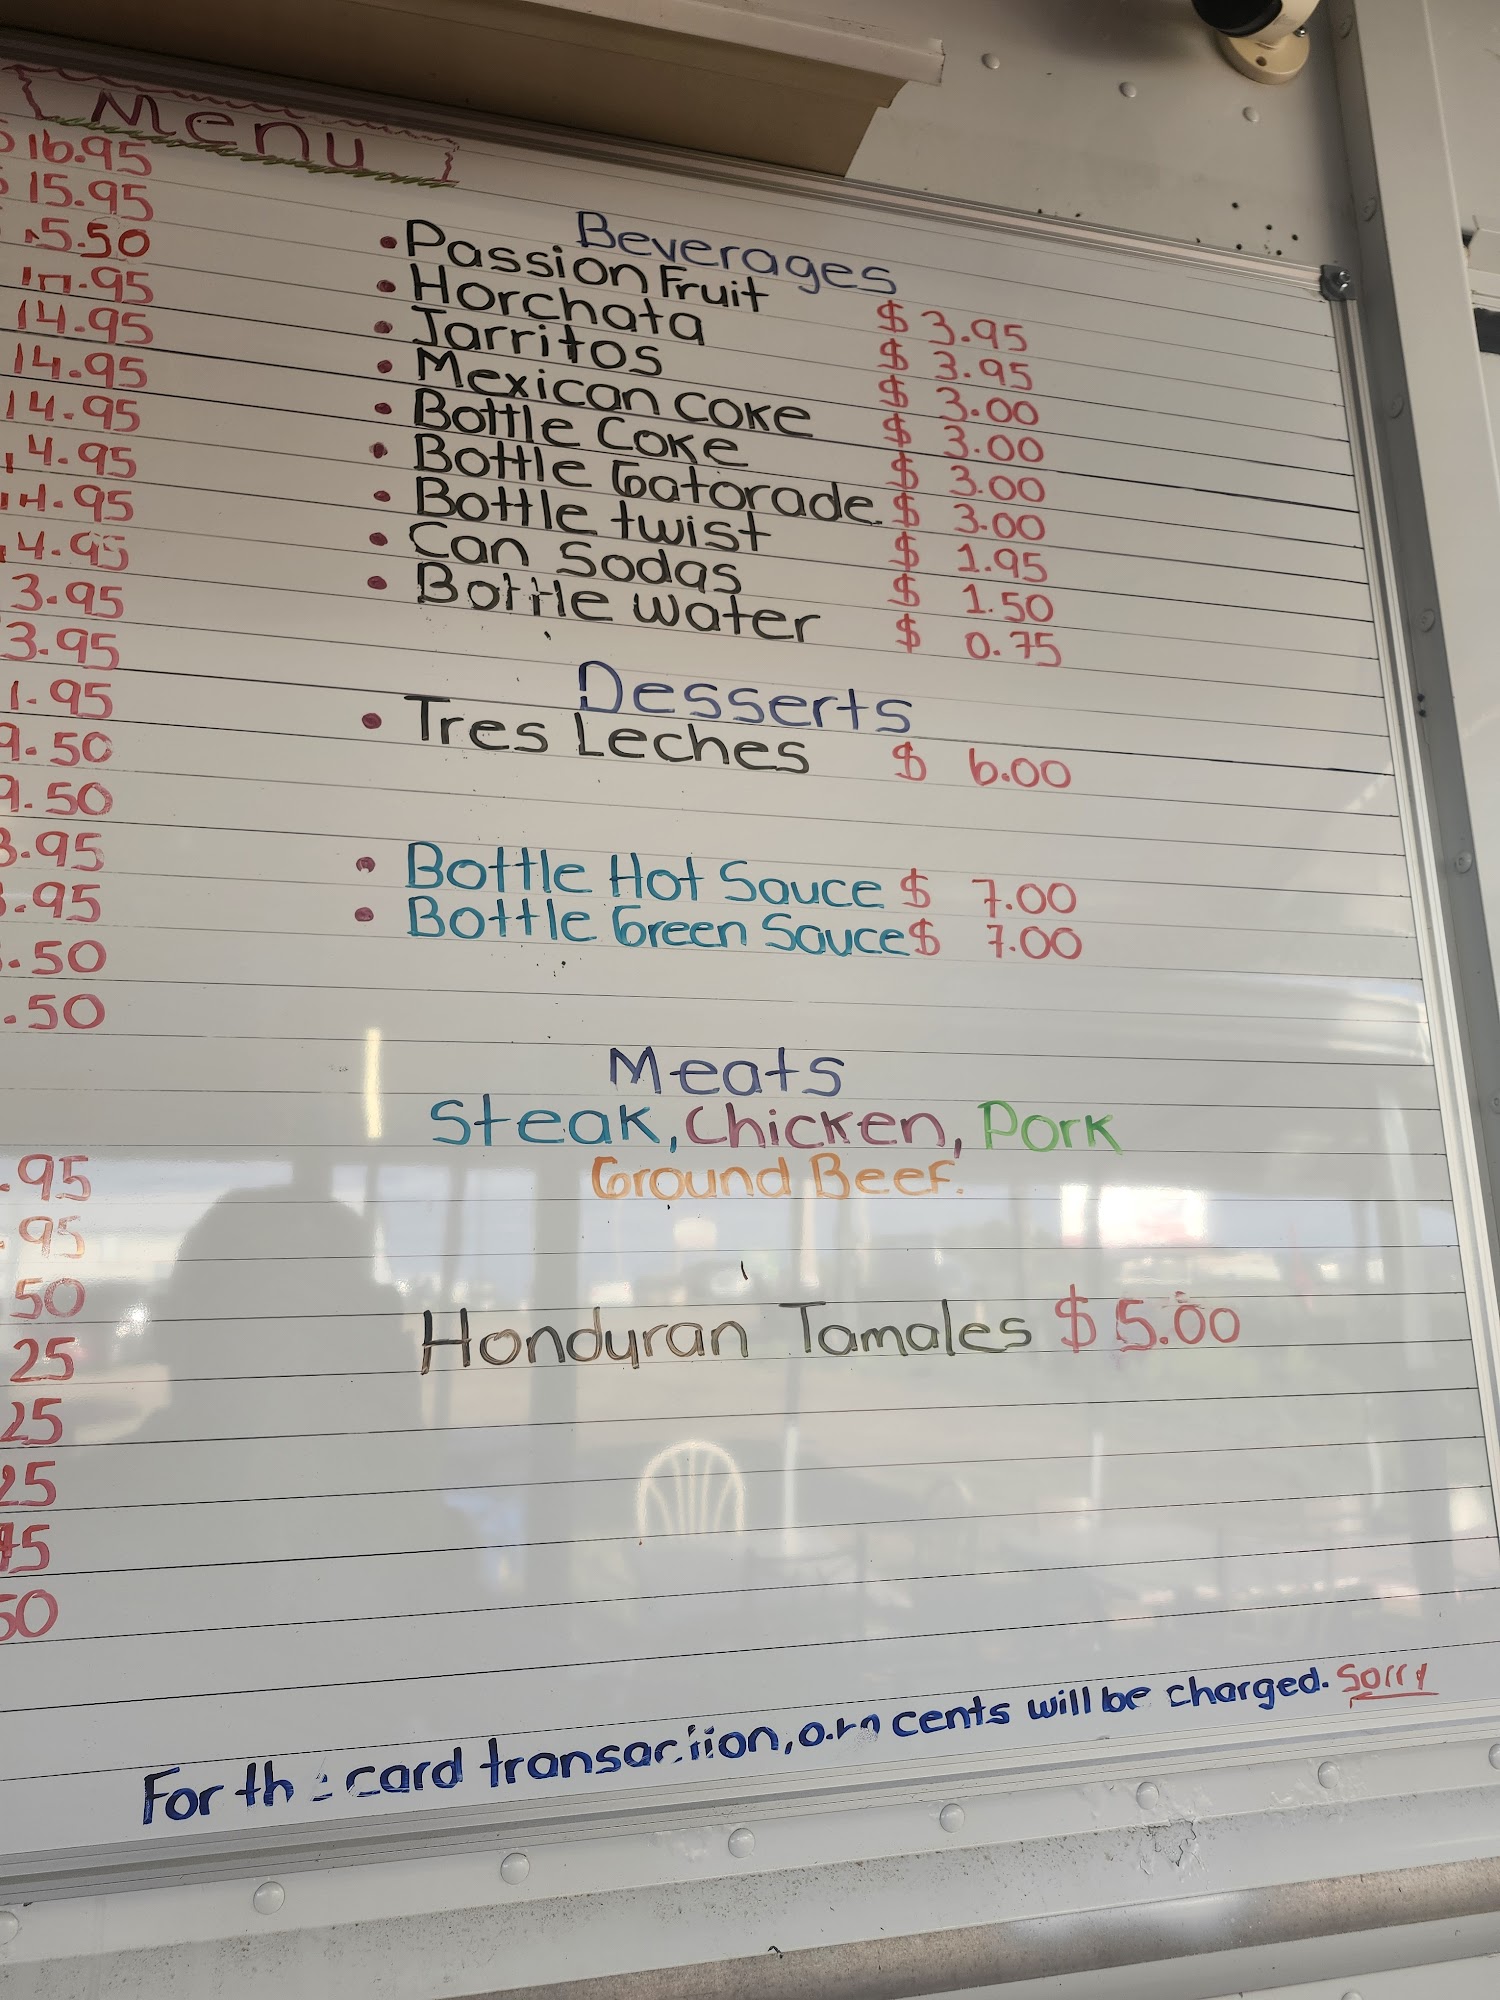 Menu
16.95
15.95
5.50
14.95
14.95
14.95
4.95
14.95
4.95
3.95
3.95
1.95
9.50
9.50
3.95
.95
.50
.50
.95
.95
50
25
25
25
50
Beverages
• Passion Fruit $ 3.95
• Horchata $ 3.95
• Jarritos $ 3.00
• Mexican coke $ 3.00
• Bottle Coke $ 3.00
• Bottle Gatorade $ 3.00
• Bottle twist $ 1.95
• Can Sodas $ 1.50
• Bottle water $ 0.75
Desserts
• Tres Leches $ 6.00
• Bottle Hot Sauce $ 7.00
• Bottle Green Sauce $ 7.00
Meats
Steak, Chicken, Pork
Ground Beef.
Honduran Tamales $ 5.00
For the card transaction, cents will be charged. Sorry